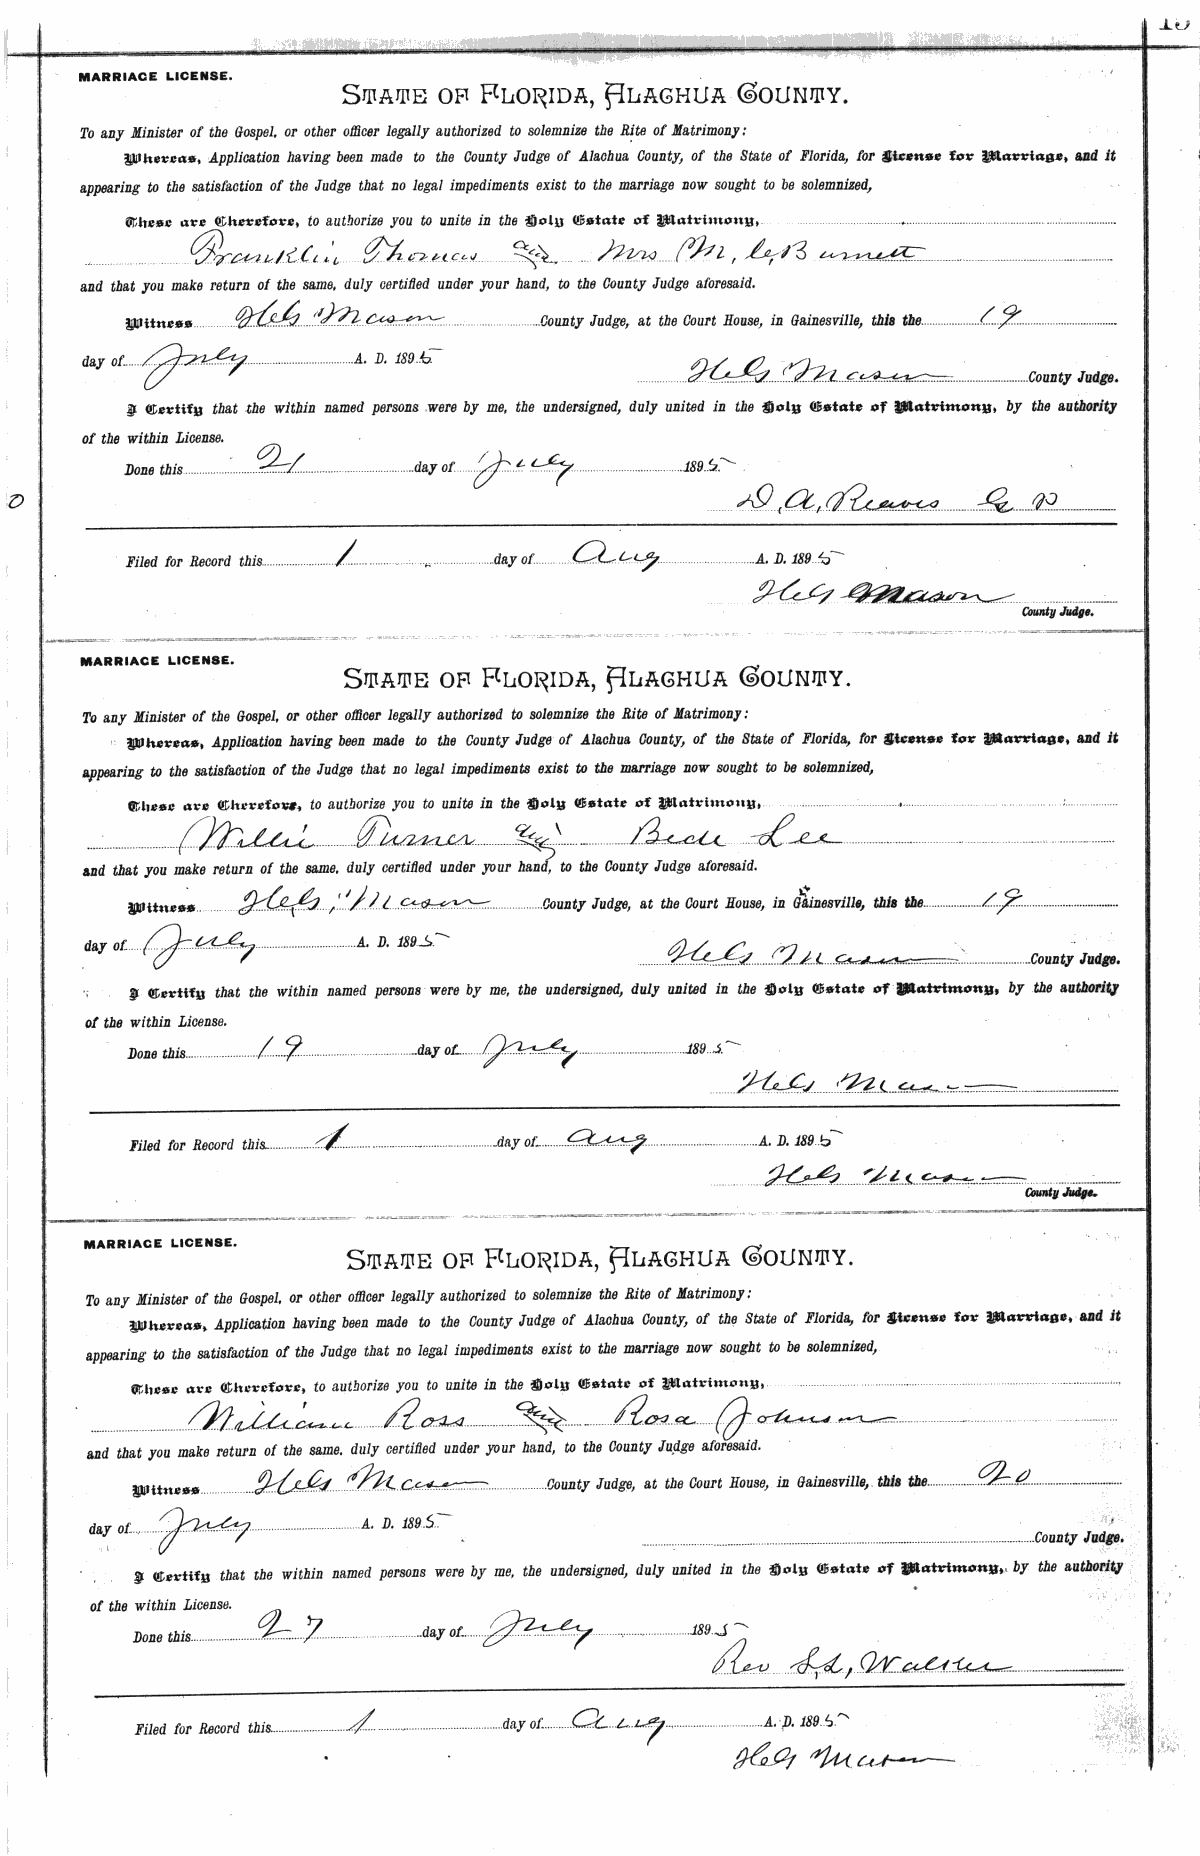 MARRIAGE LICENSE.
STATE OF FLORIDA, ALACHUA COUNTY.
To any Minister of the Gospel, or other officer legally authorized to solemnize the Rite of Matrimony:
Whereas, Application having been made to the County Judge of Alachua County, of the State of Florida, for License for Marriage, and it
appearing to the satisfaction of the Judge that no legal impediments exist to the marriage now sought to be solemnized,
These are Therefore, to authorize you to unite in the Holy Estate of Matrimony,
Franklin Thomas and Mrs M, C, Burnett
and that you make return of the same, duly certified under your hand, to the County Judge aforesaid.
Witness HCG Mason County Judge, at the Court House, in Gainesville, this the 19
day of July A. D. 1895
HCG Mason County Judge.
I Certify that the within named persons were by me, the undersigned, duly united in the Holy Estate of Matrimony, by the authority
of the within License.
Done this 21 day of July 1895
D, A, Reaves
Filed for Record this 1 day of Aug A. D. 1895
HCG Mason
County Judge.
MARRIAGE LICENSE.
STATE OF FLORIDA, ALACHUA COUNTY.
To any Minister of the Gospel, or other officer legally authorized to solemnize the Rite of Matrimony:
Whereas, Application having been made to the County Judge of Alachua County, of the State of Florida, for License for Marriage, and it
appearing to the satisfaction of the Judge that no legal impediments exist to the marriage now sought to be solemnized,
These are Therefore, to authorize you to unite in the Holy Estate of Matrimony,
Willie Turner and Bede Lee
and that you make return of the same, duly certified under your hand, to the County Judge aforesaid.
Witness HCG Mason County Judge, at the Court House, in Gainesville, this the 19
day of July A. D. 1895
HCG Mason County Judge.
I Certify that the within named persons were by me, the undersigned, duly united in the Holy Estate of Matrimony, by the authority
of the within License.
Done this 19 day of July 1895
HCG Mason
Filed for Record this 1 day of Aug A. D. 1895
HCG Mason
County Judge.
MARRIAGE LICENSE.
STATE OF FLORIDA, ALACHUA COUNTY.
To any Minister of the Gospel, or other officer legally authorized to solemnize the Rite of Matrimony:
Whereas, Application having been made to the County Judge of Alachua County, of the State of Florida, for License for Marriage, and it
appearing to the satisfaction of the Judge that no legal impediments exist to the marriage now sought to be solemnized,
These are Therefore, to authorize you to unite in the Holy Estate of Matrimony,
William Ross and Rosa Johnson
and that you make return of the same, duly certified under your hand, to the County Judge aforesaid.
Witness HCG Mason County Judge, at the Court House, in Gainesville, this the 20
day of July A. D. 1895
County Judge.
I Certify that the within named persons were by me, the undersigned, duly united in the Holy Estate of Matrimony, by the authority
of the within License.
Done this 27 day of July 1895
Rev S, L, Walker
Filed for Record this 1 day of Aug A. D. 1895
HCG Mason